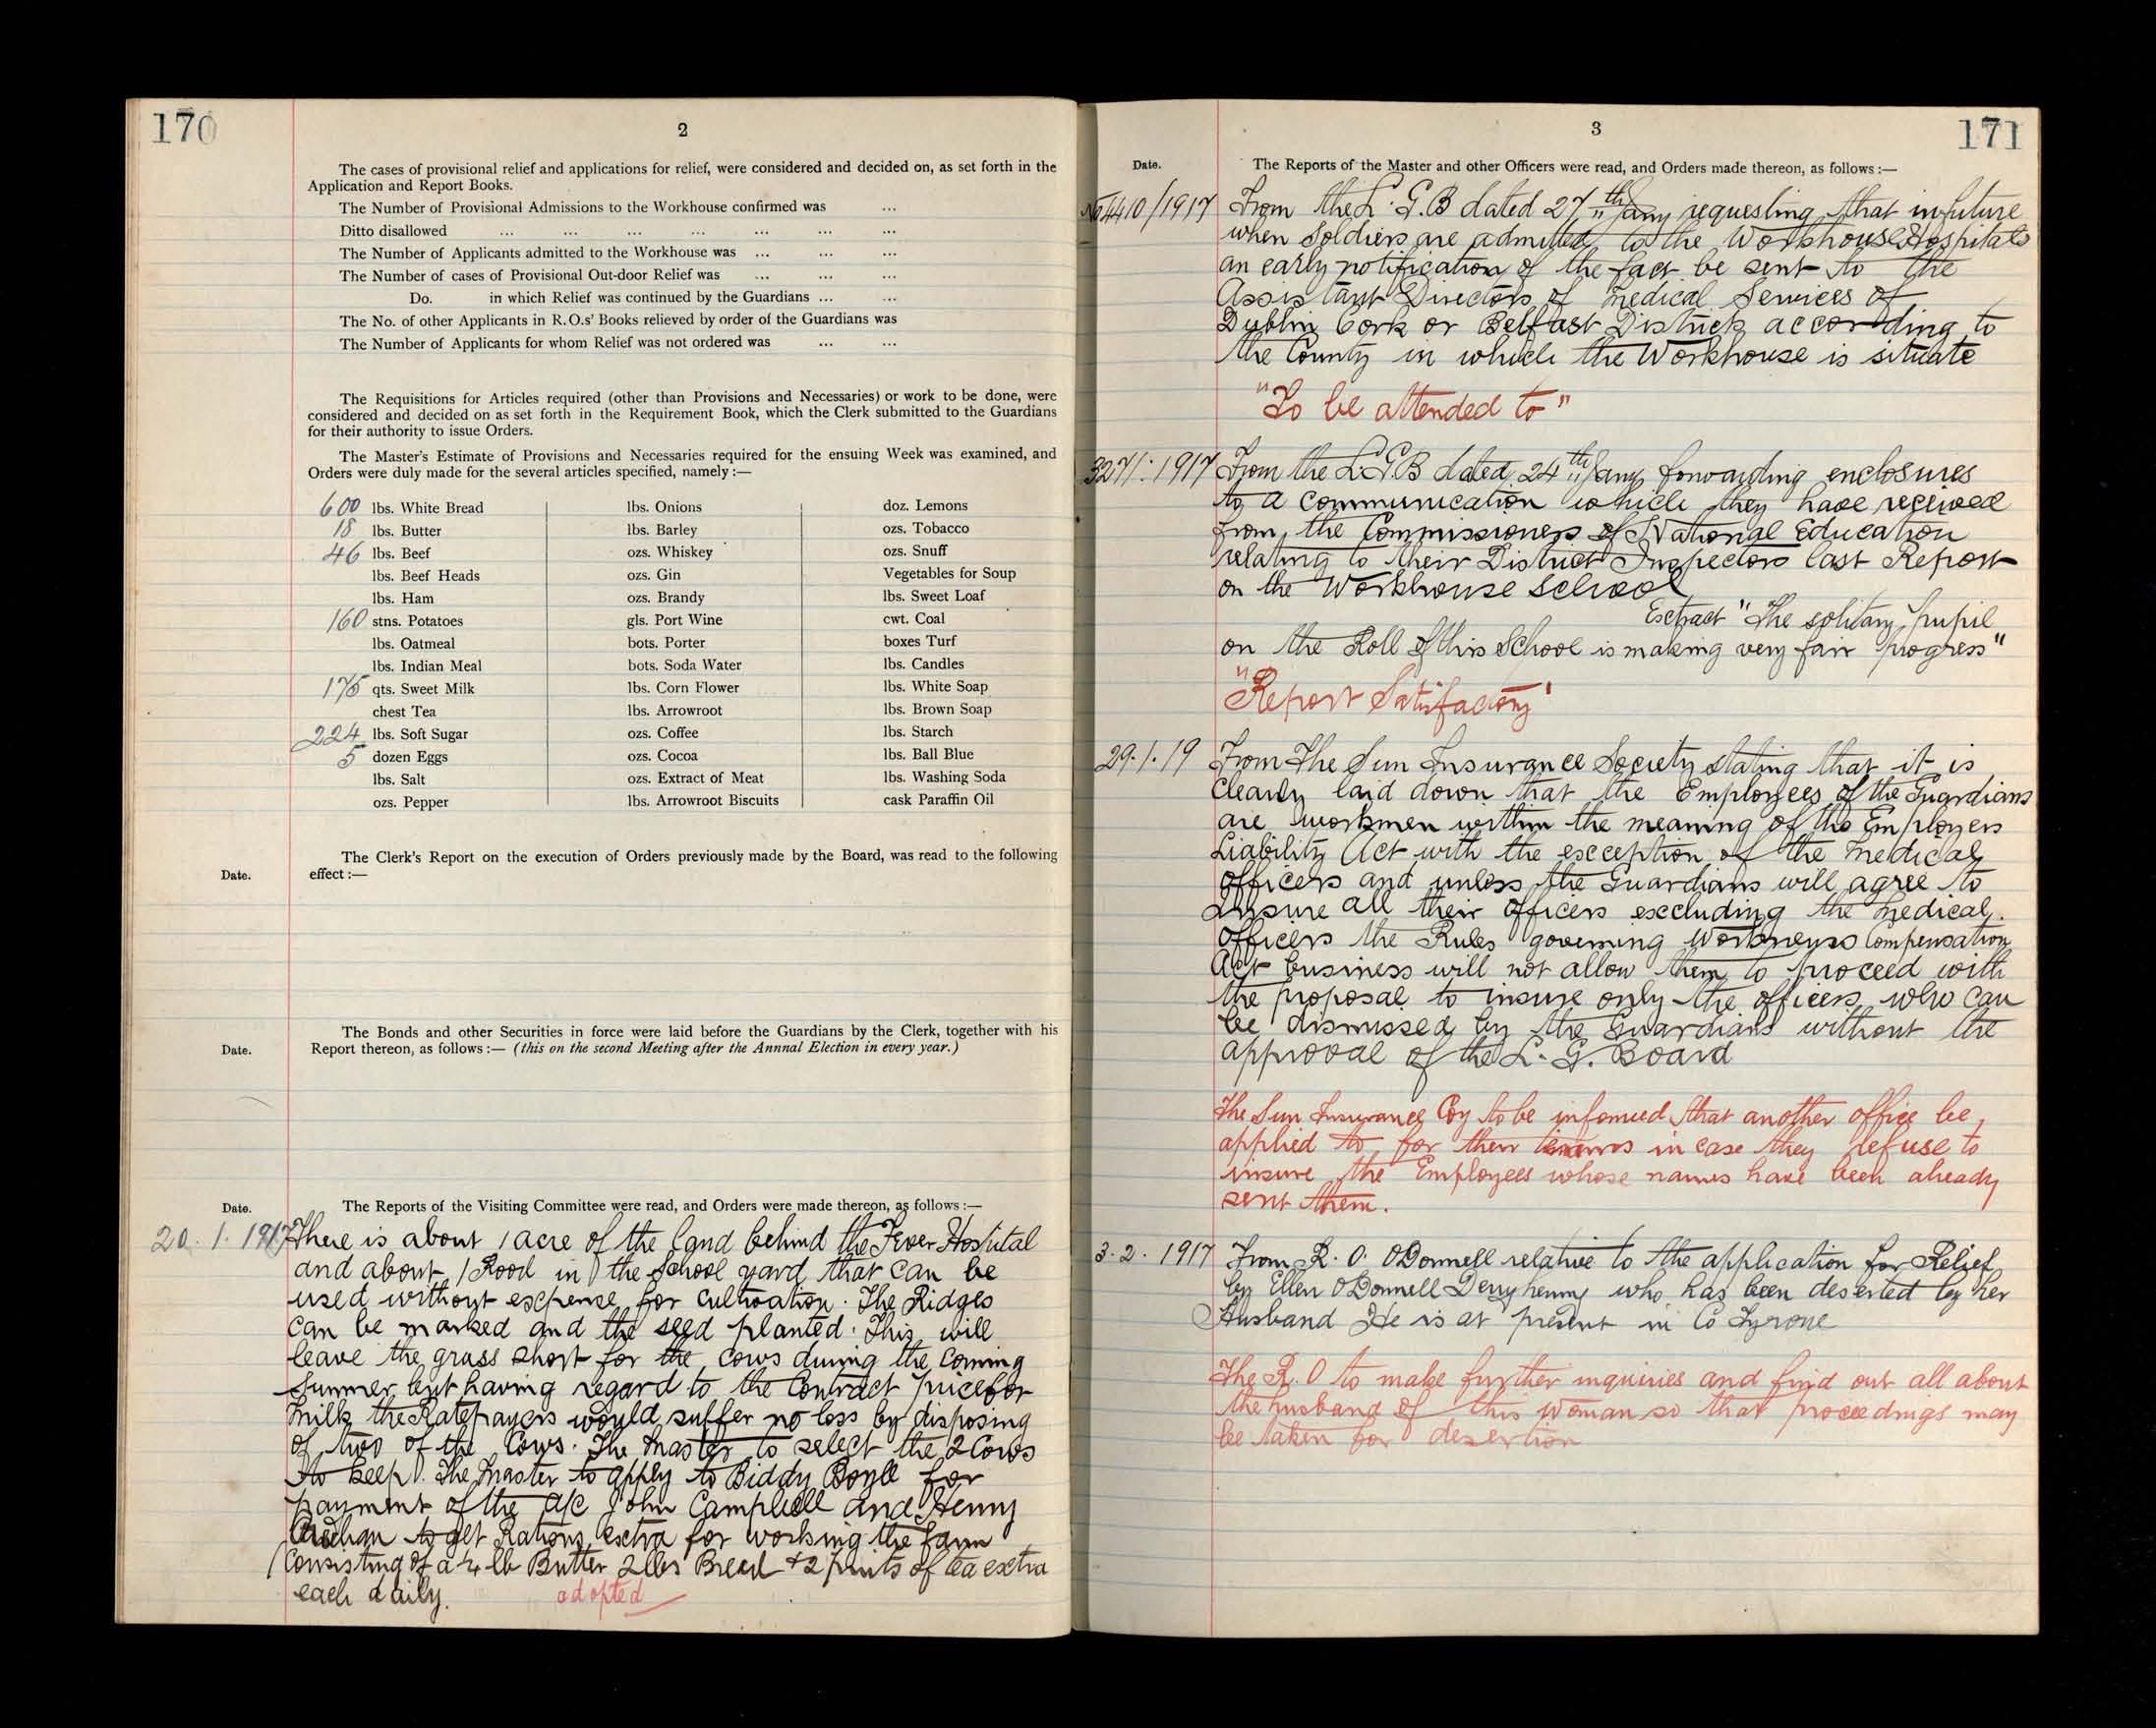 170
2
The cases of provisional relief and applications for relief, were considered and decided on, as set forth in the
Application and Report Books.
The Number of Provisional Admissions to the Workhouse confirmed was ...
Ditto disallowed ... ... ... ... ... ... ...
The Number of Applicants admitted to the Workhouse was ... ... ...
The Number of cases of Provisional Out-door Relief was ... ... ...
Do. in which Relief was continued by the Guardians ... ...
The No. of other Applicants in R.O.s' Books relieved by order of the Guardians was
The Number of Applicants for whom Relief was not ordered was ... ...
The Requisitions for Articles required (other than Provisions and Necessaries) or work to be done, were
considered and decided on as set forth in the Requirement Book, which the Clerk submitted to the Guardians
for their authority to issue Orders.
The Master's Estimate of Provisions and Necessaries required for the ensuing Week was examined, and
Orders were duly made for the several articles specified, namely :—
600 lbs. White Bread lbs. Onions doz. Lemons
18 lbs. Butter lbs. Barley ozs. Tobacco
46 lbs. Beef ozs. Whiskey ozs. Snuff
lbs. Beef Heads ozs. Gin Vegetables for Soup
lbs. Ham ozs. Brandy lbs. Sweet Loaf
160 stns. Potatoes gls. Port Wine cwt. Coal
lbs. Oatmeal bots. Porter boxes Turf
lbs. Indian Meal bots. Soda Water lbs. Candles
175 qts. Sweet Milk lbs. Corn Flower lbs. White Soap
chest Tea lbs. Arrowroot lbs. Brown Soap
224 lbs. Soft Sugar ozs. Coffee lbs. Starch
5 dozen Eggs ozs. Cocoa lbs. Ball Blue
lbs. Salt ozs. Extract of Meat lbs. Washing Soda
ozs. Pepper lbs. Arrowroot Biscuits cask Paraffin Oil
The Clerk's Report on the execution of Orders previously made by the Board, was read to the following
Date. effect :—
The Bonds and other Securities in force were laid before the Guardians by the Clerk, together with his
Date. Report thereon, as follows :— (this on the second Meeting after the Annnal Election in every year.)
Date. The Reports of the Visiting Committee were read, and Orders were made thereon, as follows :—
20. 1. 1917 There is about 1 acre of the land behind the Fever Hospital
and about 1 Rood in the School yard that can be
used without expense for cultivation. The Ridges
can be marked and the seed planted. This will
leave the grass short for the cows during the coming
Summer but having regard to the Contract price for
milk the Ratepayers would suffer no loss by disposing
of two of the Cows. The Master to select the 2 Cows
to keep. The Master to apply to Biddy Boyle for
payment of the a/c John Campbell and Henry
to get Rations extra for working the farm
Consisting of a ¼ lb Butter 2 lbs Bread + 2 pints of tea extra
each daily. adopted
171
3
Date. The Reports of the Master and other Officers were read, and Orders made thereon, as follows :—
No 4410/1917 From the L. G. B dated 27th Jany requesting that in future
when Soldiers are admitted to the Workhouse Hospitals
an early notification of the fact be sent to the
Assistant Directors of Medical Services of
Dublin Cork or Belfast Districts according to
the County in which the Workhouse is situate
"To be attended to"
3271.1917 From the L.G.B dated 24th Jany forwarding enclosures
to a communication which they have received
from the Commissioners of National Education
relating to their District Inspectors last Report
on the Workhouse School
Extract "The solitary pupil
on the Roll of this School is making very fair progress"
"Report Satisfactory"
29.1.19 From The Sun Insurance Society stating that it is
clearly laid down that the Employees of the Guardians
are workmen within the meaning of the Employers
Liability Act with the exception of the medical
officers and unless the Guardians will agree to
Insure all their officers excluding the medical
officers the Rules governing Workmens Compensation
Act business will not allow them to proceed with
the proposal to insure only the officers who can
be dismissed by the Guardians without the
approval of the L. G. Board
The Sun Insurance Coy to be informed that another office be
applied to for their in case they refuse to
insure the Employees whose names have been already
sent them.
3.2.1917 From R. O. O'Donnell relative to the application for Relief
by Ellen O'Donnell Derryhenny who has been deserted by her
Husband He is at present in Co Tyrone
The R. O to make further inquiries and find out all about
the husband of this woman so that proceedings may
be taken for desertion